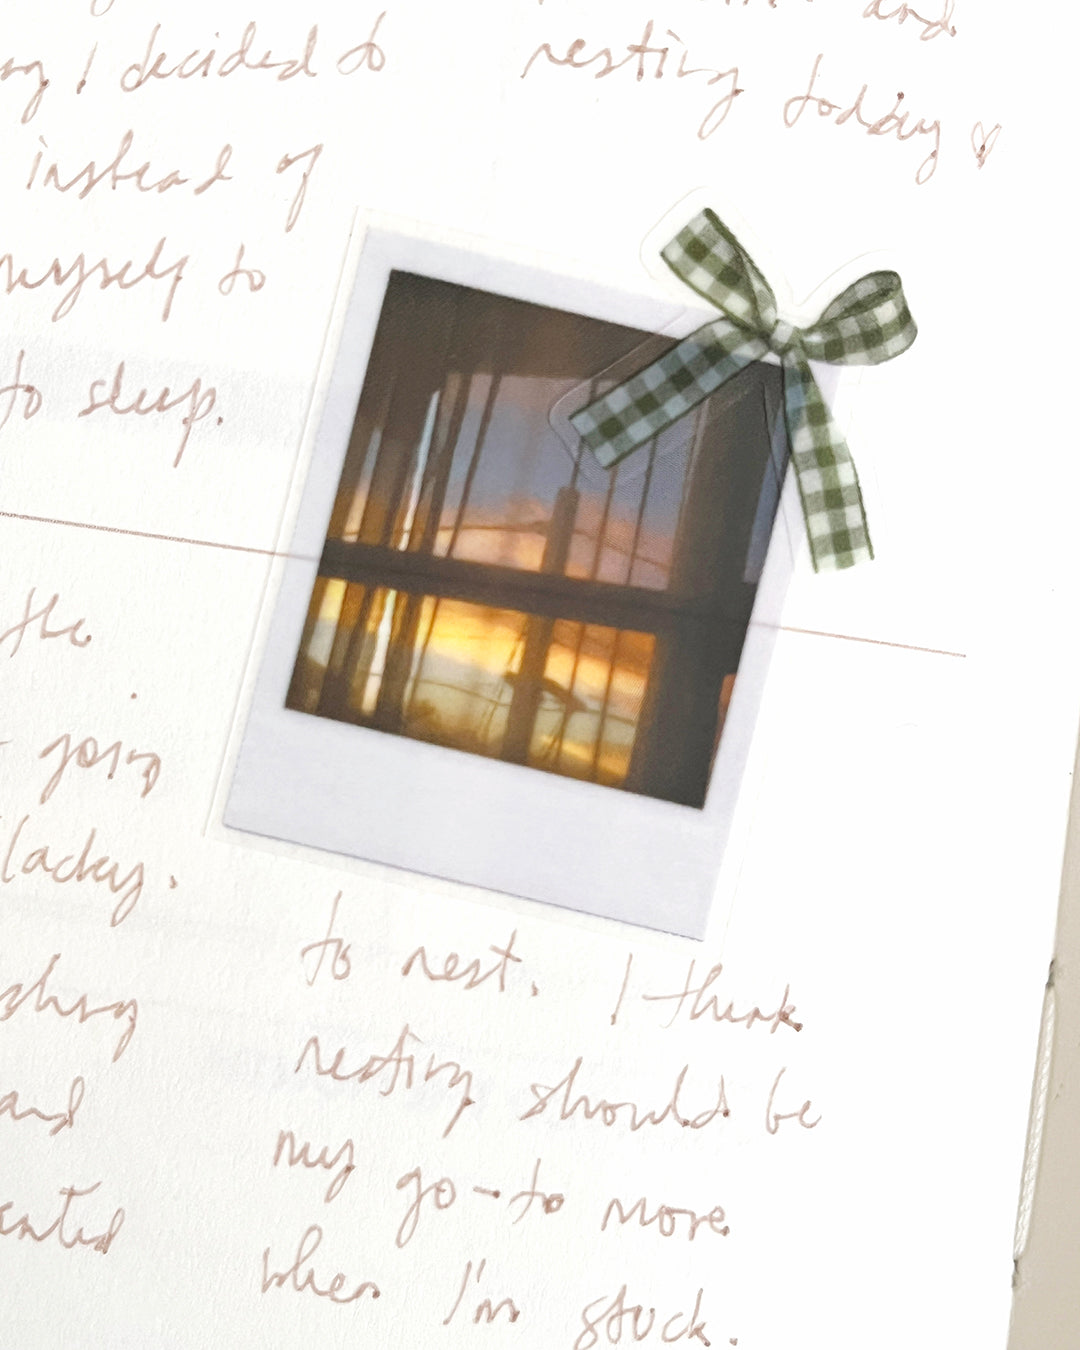 I decided to
instead of
myself to
to sleep.
and
resting today ♡
the
and
to rest. I think
resting should be
my go-to more
when I'm stuck.